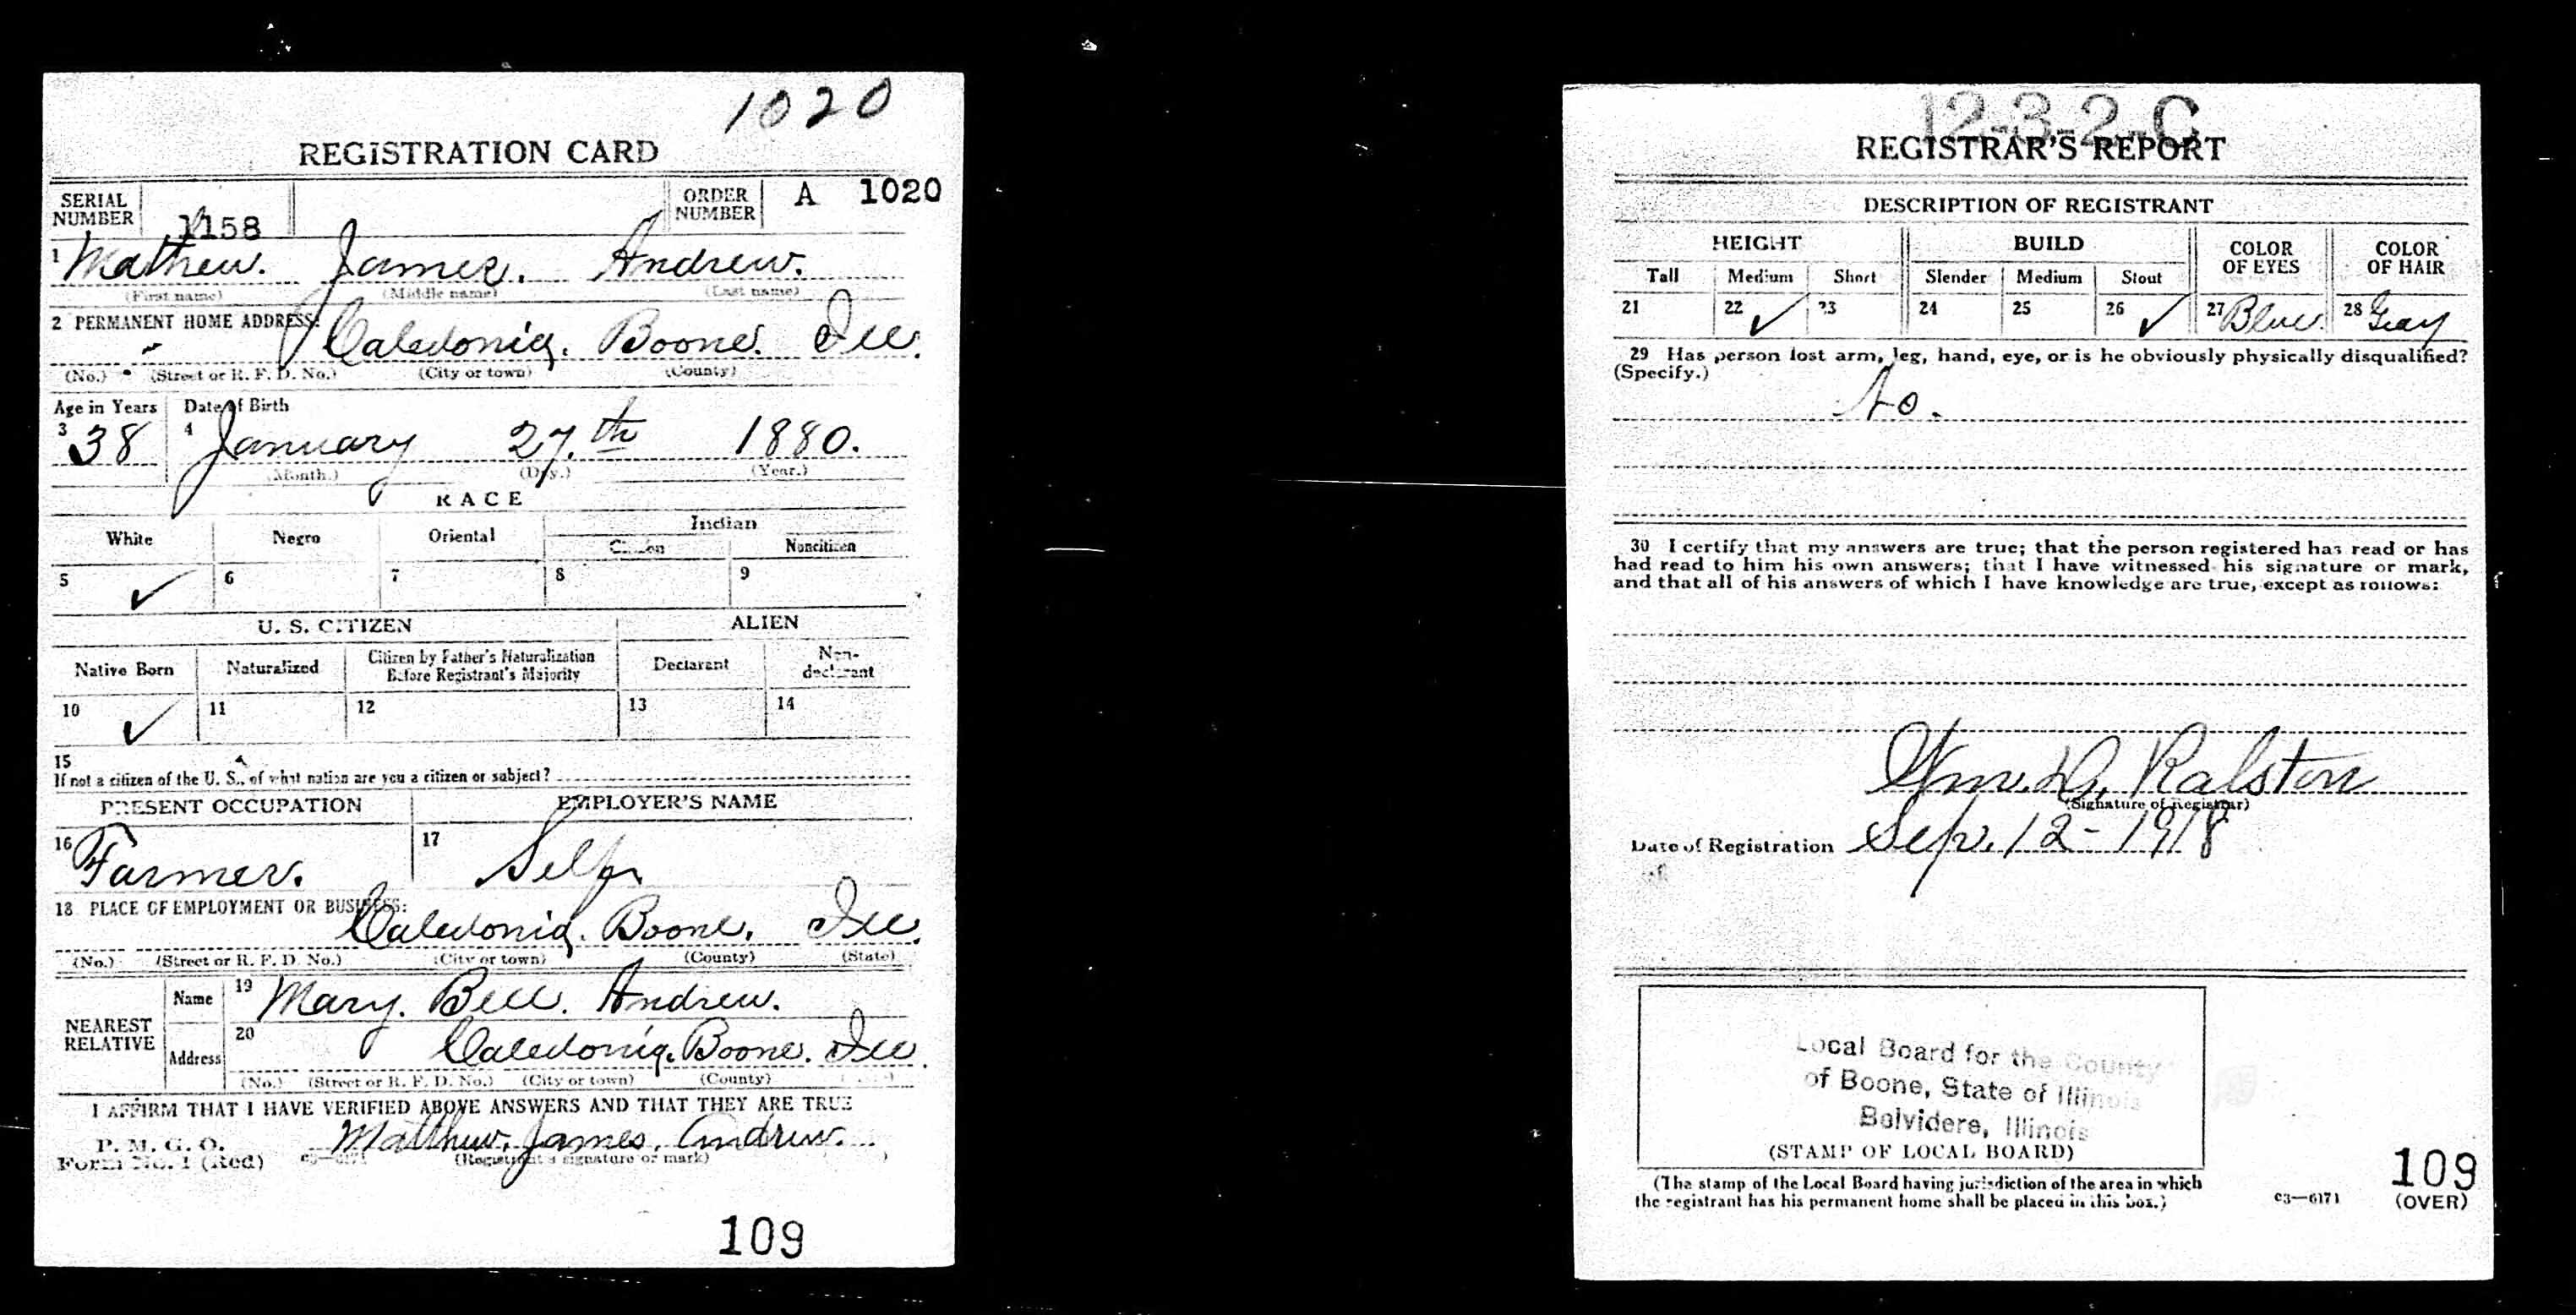 1020
REGISTRATION CARD
SERIAL NUMBER 1158 ORDER NUMBER A 1020
1 Mathew. James. Andrew.
(First name) (Middle name) (Last name)
2 PERMANENT HOME ADDRESS:
Caledonia. Boone. Ill.
(No.) (Street or R. F. D. No.) (City or town) (County)
Age in Years Date of Birth
3 38 4 January 27.th 1880.
(Month.) (Day.) (Year.)
RACE
White Negro Oriental Indian
Citizen Noncitizen
5 ✓ 6 7 8 9
U. S. CITIZEN ALIEN
Native Born Naturalized Citizen by Father's Naturalization Before Registrant's Majority Declarant Non-declarant
10 ✓ 11 12 13 14
15
If not a citizen of the U. S., of what nation are you a citizen or subject?
PRESENT OCCUPATION EMPLOYER'S NAME
16 Farmer. 17 Self
18 PLACE OF EMPLOYMENT OR BUSINESS:
Caledonia. Boone. Ill.
(No.) (Street or R. F. D. No.) (City or town) (County) (State)
NEAREST RELATIVE Name 19 Mary. Bell. Andrew.
Address 20 Caledonia. Boone. Ill.
(No.) (Street or R. F. D. No.) (City or town) (County)
I AFFIRM THAT I HAVE VERIFIED ABOVE ANSWERS AND THAT THEY ARE TRUE
P. M. G. O.
Form No. 1 (Red) c3—6171 Matthew. James. Andrew.
(Registrant's signature or mark)
109
12-3-2-C
REGISTRAR'S REPORT
DESCRIPTION OF REGISTRANT
HEIGHT BUILD COLOR OF EYES COLOR OF HAIR
Tall Medium Short Slender Medium Stout
21 22 ✓ 23 24 25 26 ✓ 27 Blue. 28 Gray
29 Has person lost arm, leg, hand, eye, or is he obviously physically disqualified?
(Specify.)
No.
30 I certify that my answers are true; that the person registered has read or has
had read to him his own answers; that I have witnessed his signature or mark,
and that all of his answers of which I have knowledge are true, except as follows:
Wm. D. Ralston
(Signature of Registrar)
Date of Registration Sep. 12 - 1918
Local Board for the County
of Boone, State of Illinois
Belvidere, Illinois
(STAMP OF LOCAL BOARD)
(The stamp of the Local Board having jurisdiction of the area in which
the registrant has his permanent home shall be placed in this box.)
c3—6171
109
(OVER)